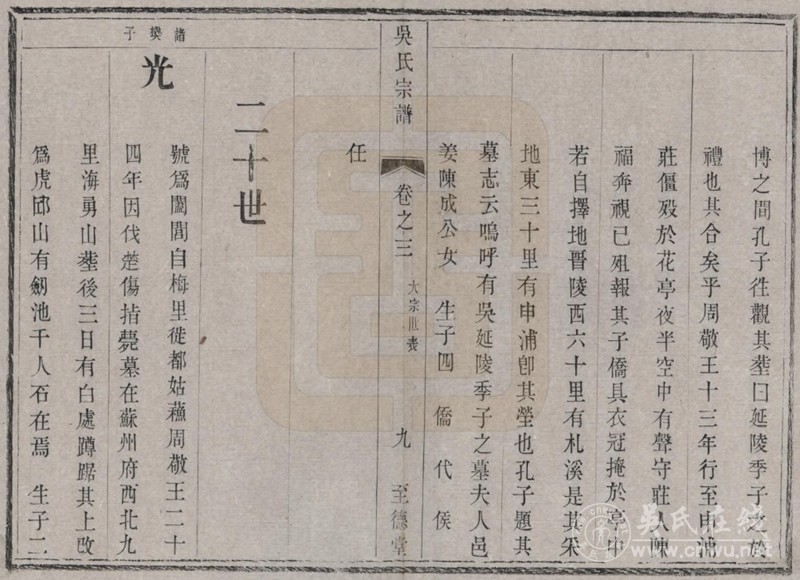 博之間孔子徃觀其塟曰延陵季子之於
禮也其合矣乎周敬王十三年行至申浦
莊僵殁於花亭夜半空中有聲守莊人陳
福奔視已殂報其子僑具衣冠掩於亭中
若自擇地晋陵西六十里有札溪是其采
地東三十里有申浦卽其塋也孔子題其
墓志云嗚呼有吳延陵季子之墓夫人邑
姜陳成公女 生子四 僑 代 侯
吳氏宗譜 卷之三 大宗世表 九 至德堂
任
二十世
諸樊子
光
號爲闔閭自梅里徙都姑蘓周敬王二十
四年因伐楚傷指薨墓在蘇州府西北九
里海勇山塟後三日有白處蹲踞其上改
爲虎邱山有劒池千人石在焉 生子二
吳氏在线
www.cnwu.net